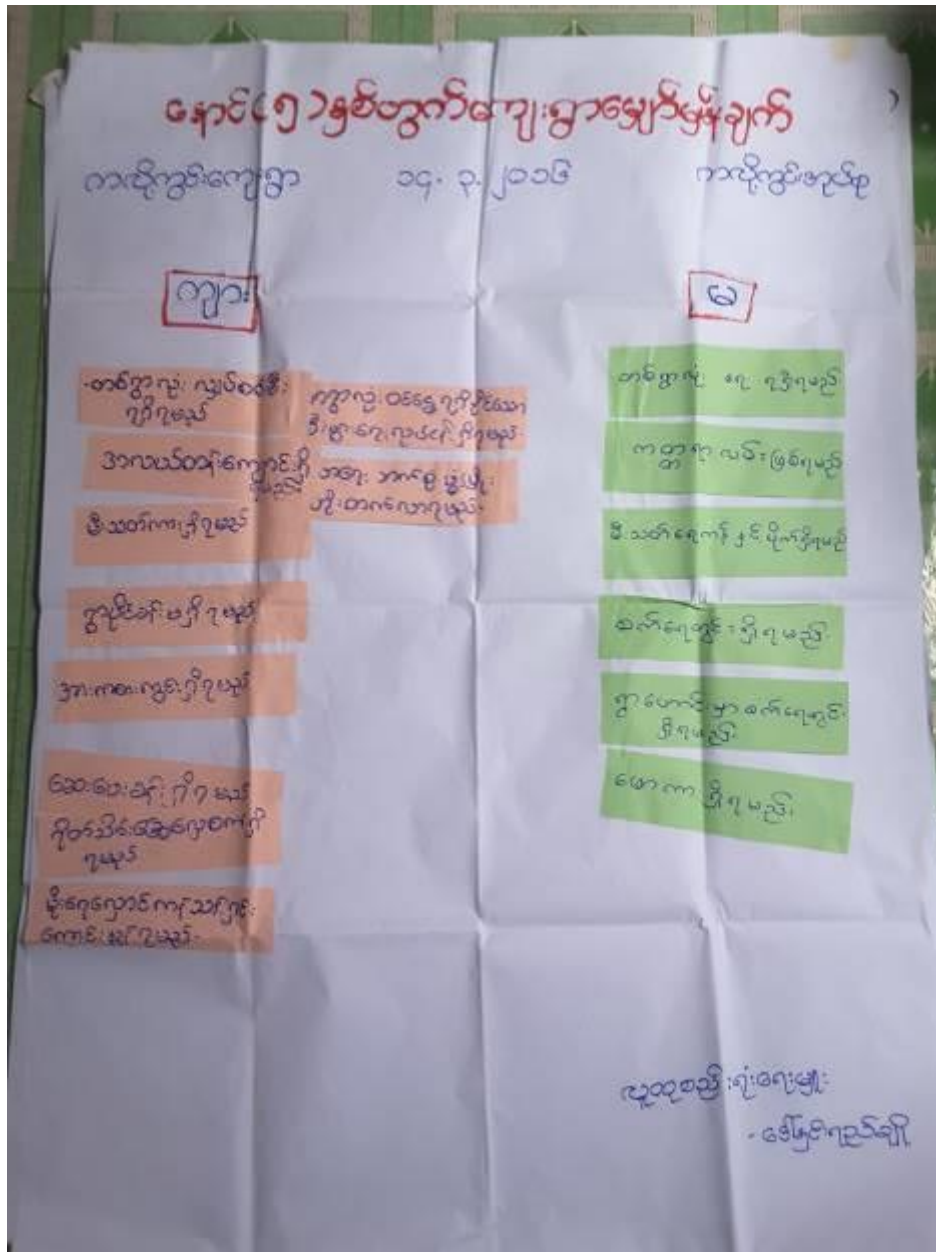 နောင်(၅)နှစ်တွက်ကျေးရွာမျှော်မှန်းချက်
ကလိုကွင်းကျေးရွာ ၁၄.၃.၂၀၁၆ ကလိုကွင်းအုပ်စု
ကျား
တစ်ရွာလုံး လျှပ်စစ်မီး
ရှိရမည်
အလယ်တန်းကျောင်းရှိ
ရမည်
မီးသတ်ကားရှိရမည်
ရွာပိုင်ခန်းမရှိရမည်
အားကစားကွင်းရှိရမည်
ဆေးပေးခန်းရှိရမည်
ကိုယ်ပိုင်
ရမည်
မိုးရေလှောင်ကန်သန့်ရှင်း
ကောင်းမွန်ရမည်
ရွာလုံး ဝင်ငွေရရှိနိုင်သော
စီးပွားရေးလုပ်ငန်းရှိရမည်
ဘက်စုံဖွံ့ဖြိုး
တိုးတက်လာရမည်
မ
တစ်ရွာလုံး ရေ ရရှိရမည်
ကတ္တရာလမ်းဖြစ်ရမည်
မီးသတ်ရေကန်နှင့်ပိုက်ရှိရမည်
စက်ရေတွင်းရှိရမည်
ရွာဟောင်းမှာစက်ရေတွင်း
ရှိရမည်
မော်တော်ကားရှိရမည်
လူထုစည်းရုံးရေးမှူး